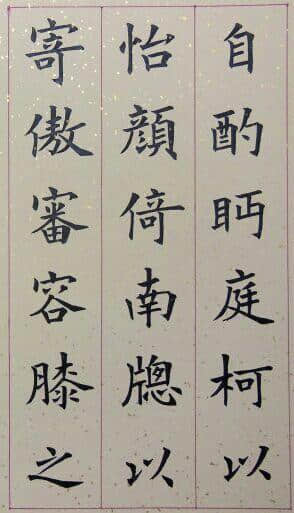 自酌眄庭柯以
怡顔倚南牎以
寄傲審容膝之